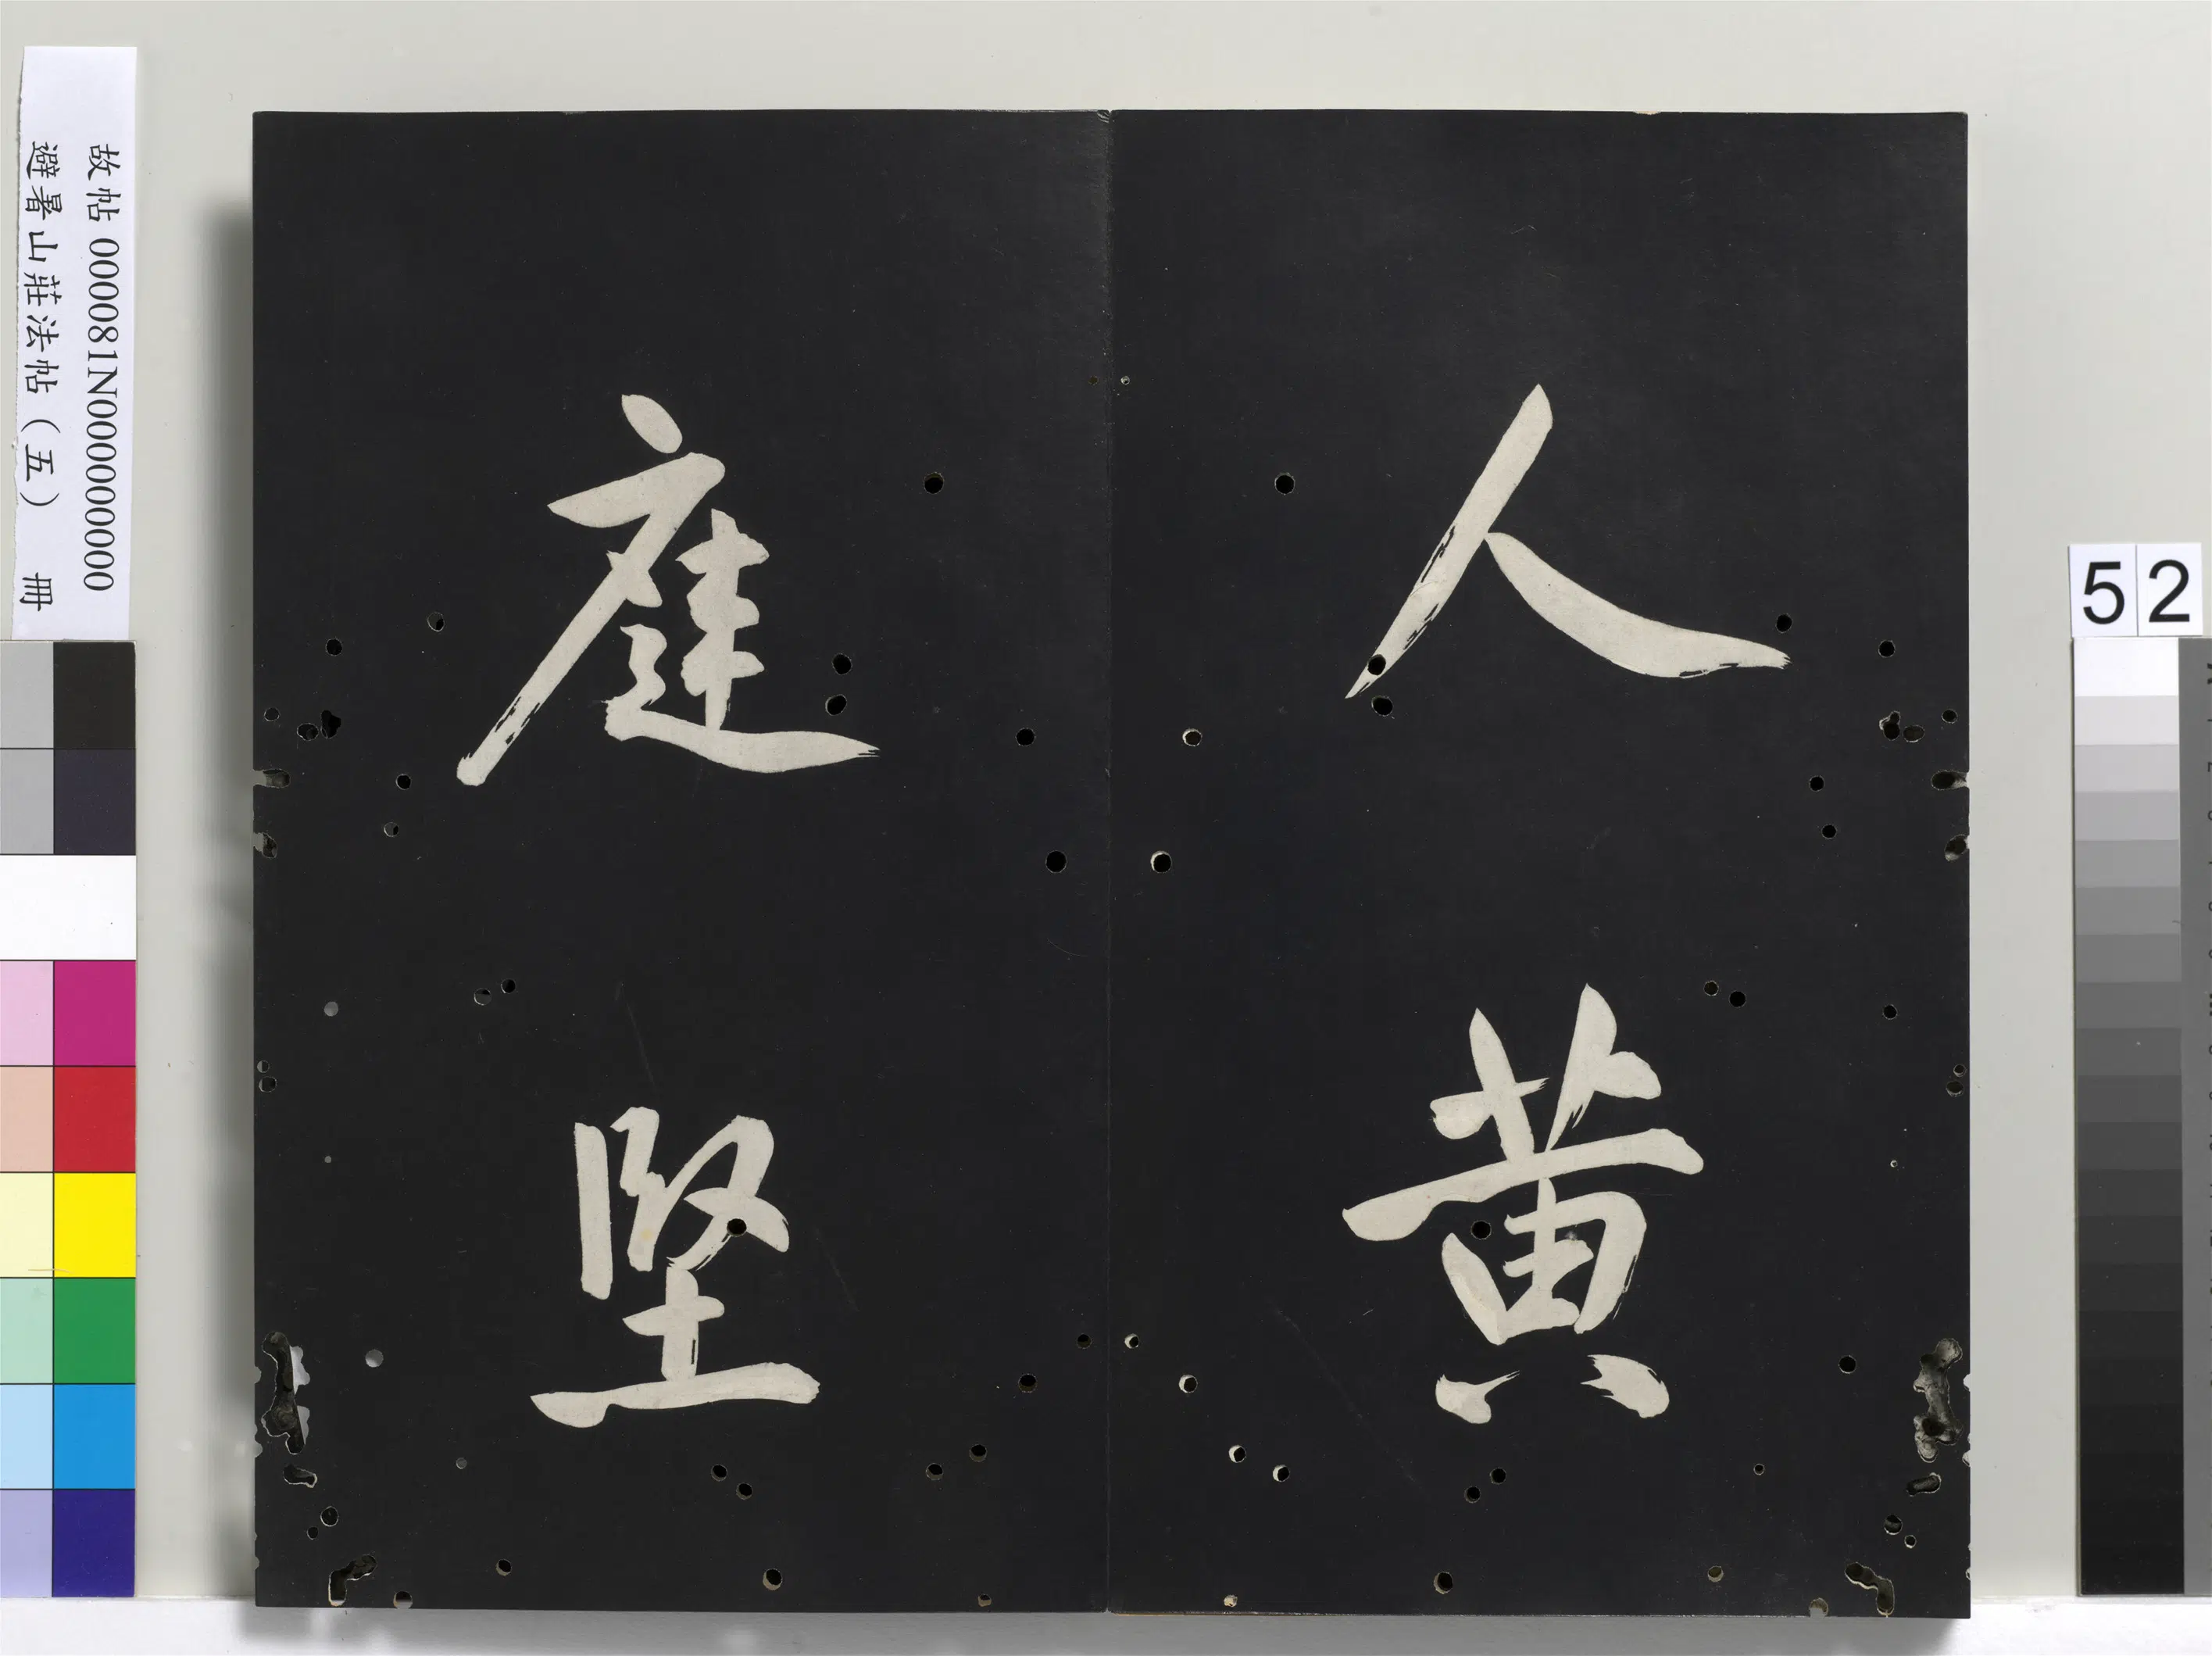 人黄
庭堅
故帖 000081N000000000
避暑山莊法帖（五） 冊
52